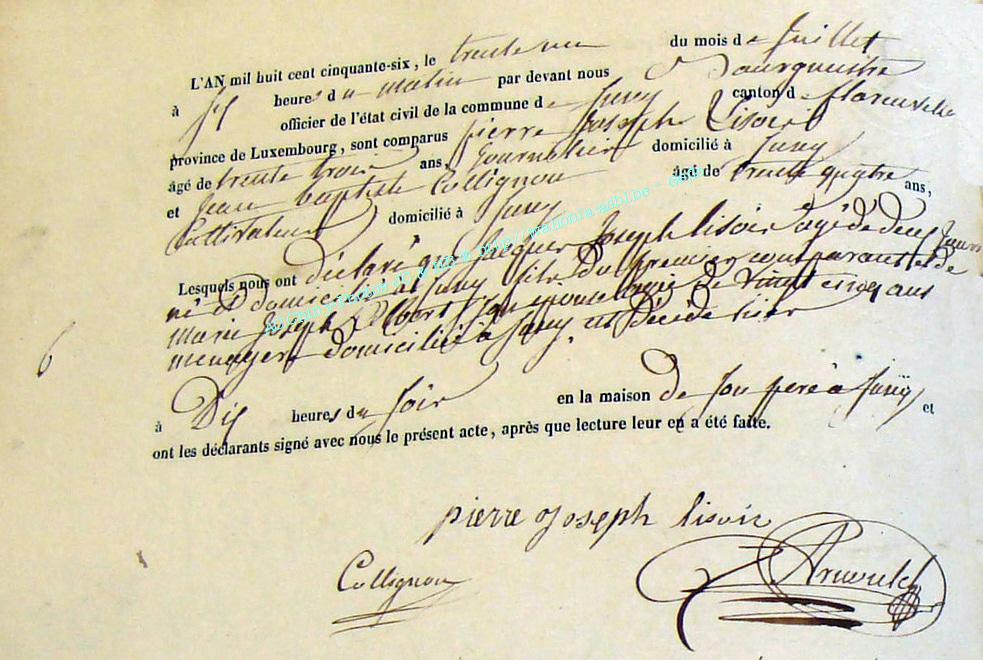 L'AN mil huit cent cinquante-six, le trente un du mois de Juillet
à six heures du matin par devant nous Bourgmestre
officier de l'état civil de la commune de Jusey canton de florenville
province de Luxembourg, sont comparus pierre Joseph Lisoir
âgé de trente trois ans, Journalier domicilié à Jusey
et Jean baptiste Collignon âgé de trente quatre ans,
Cultivateur domicilié à Jusey
Lesquels nous ont déclaré que Jacques Joseph lisoir âgé de deux jours
né et domicilié à Jusey fils du premier comparant et de
Marie Joseph Albert son épouse âgée de vingt cinq ans
menagere domiciliée à Jusey, est décédé hier
6
à Dix heures du soir en la maison de son père à Jusey et
ont les déclarants signé avec nous le présent acte, après que lecture leur en a été faite.
pierre Joseph lisoir
Collignon
Arnould